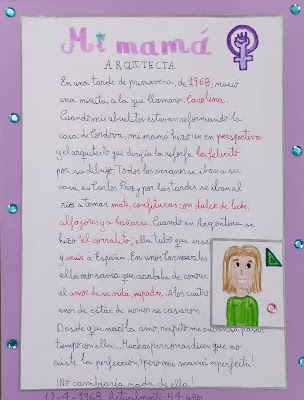 Mi mamá
ARQUITECTA
En una tarde de primavera, de 1968, nació
una niñita, a la que llamaron, Carolina.
Cuando mis abuelos estaban reformando la
casa de Cordova, mi mamá hizo un en perspectiva
y el arquitecto que dirijía la reforfa la felicitó
por su dibujo. Todos los veranos se iban a su
casa, en Carlos Paz, y por las tardes se iban al
río a tomar mate, confituras con dulce de leche,
alfajores y a bañarse. Cuando en Argentina se
hizo "el corralito", ella tubo que irse
y venir a España. En unos carnavales
ella no savía que acababa de conocer
al amor de su vida, mi padre. A los cuatro
años de estar de novios se casaron.
Desde que nací la amo, respeto me encanta pasar
tiempo con ella... Muchas personas dicen que no
existe la perfección, ¡pero mi mamá es perfecta!
¡No cambiaría nada de ella!
12-4-1968 Actualmente: 54 años